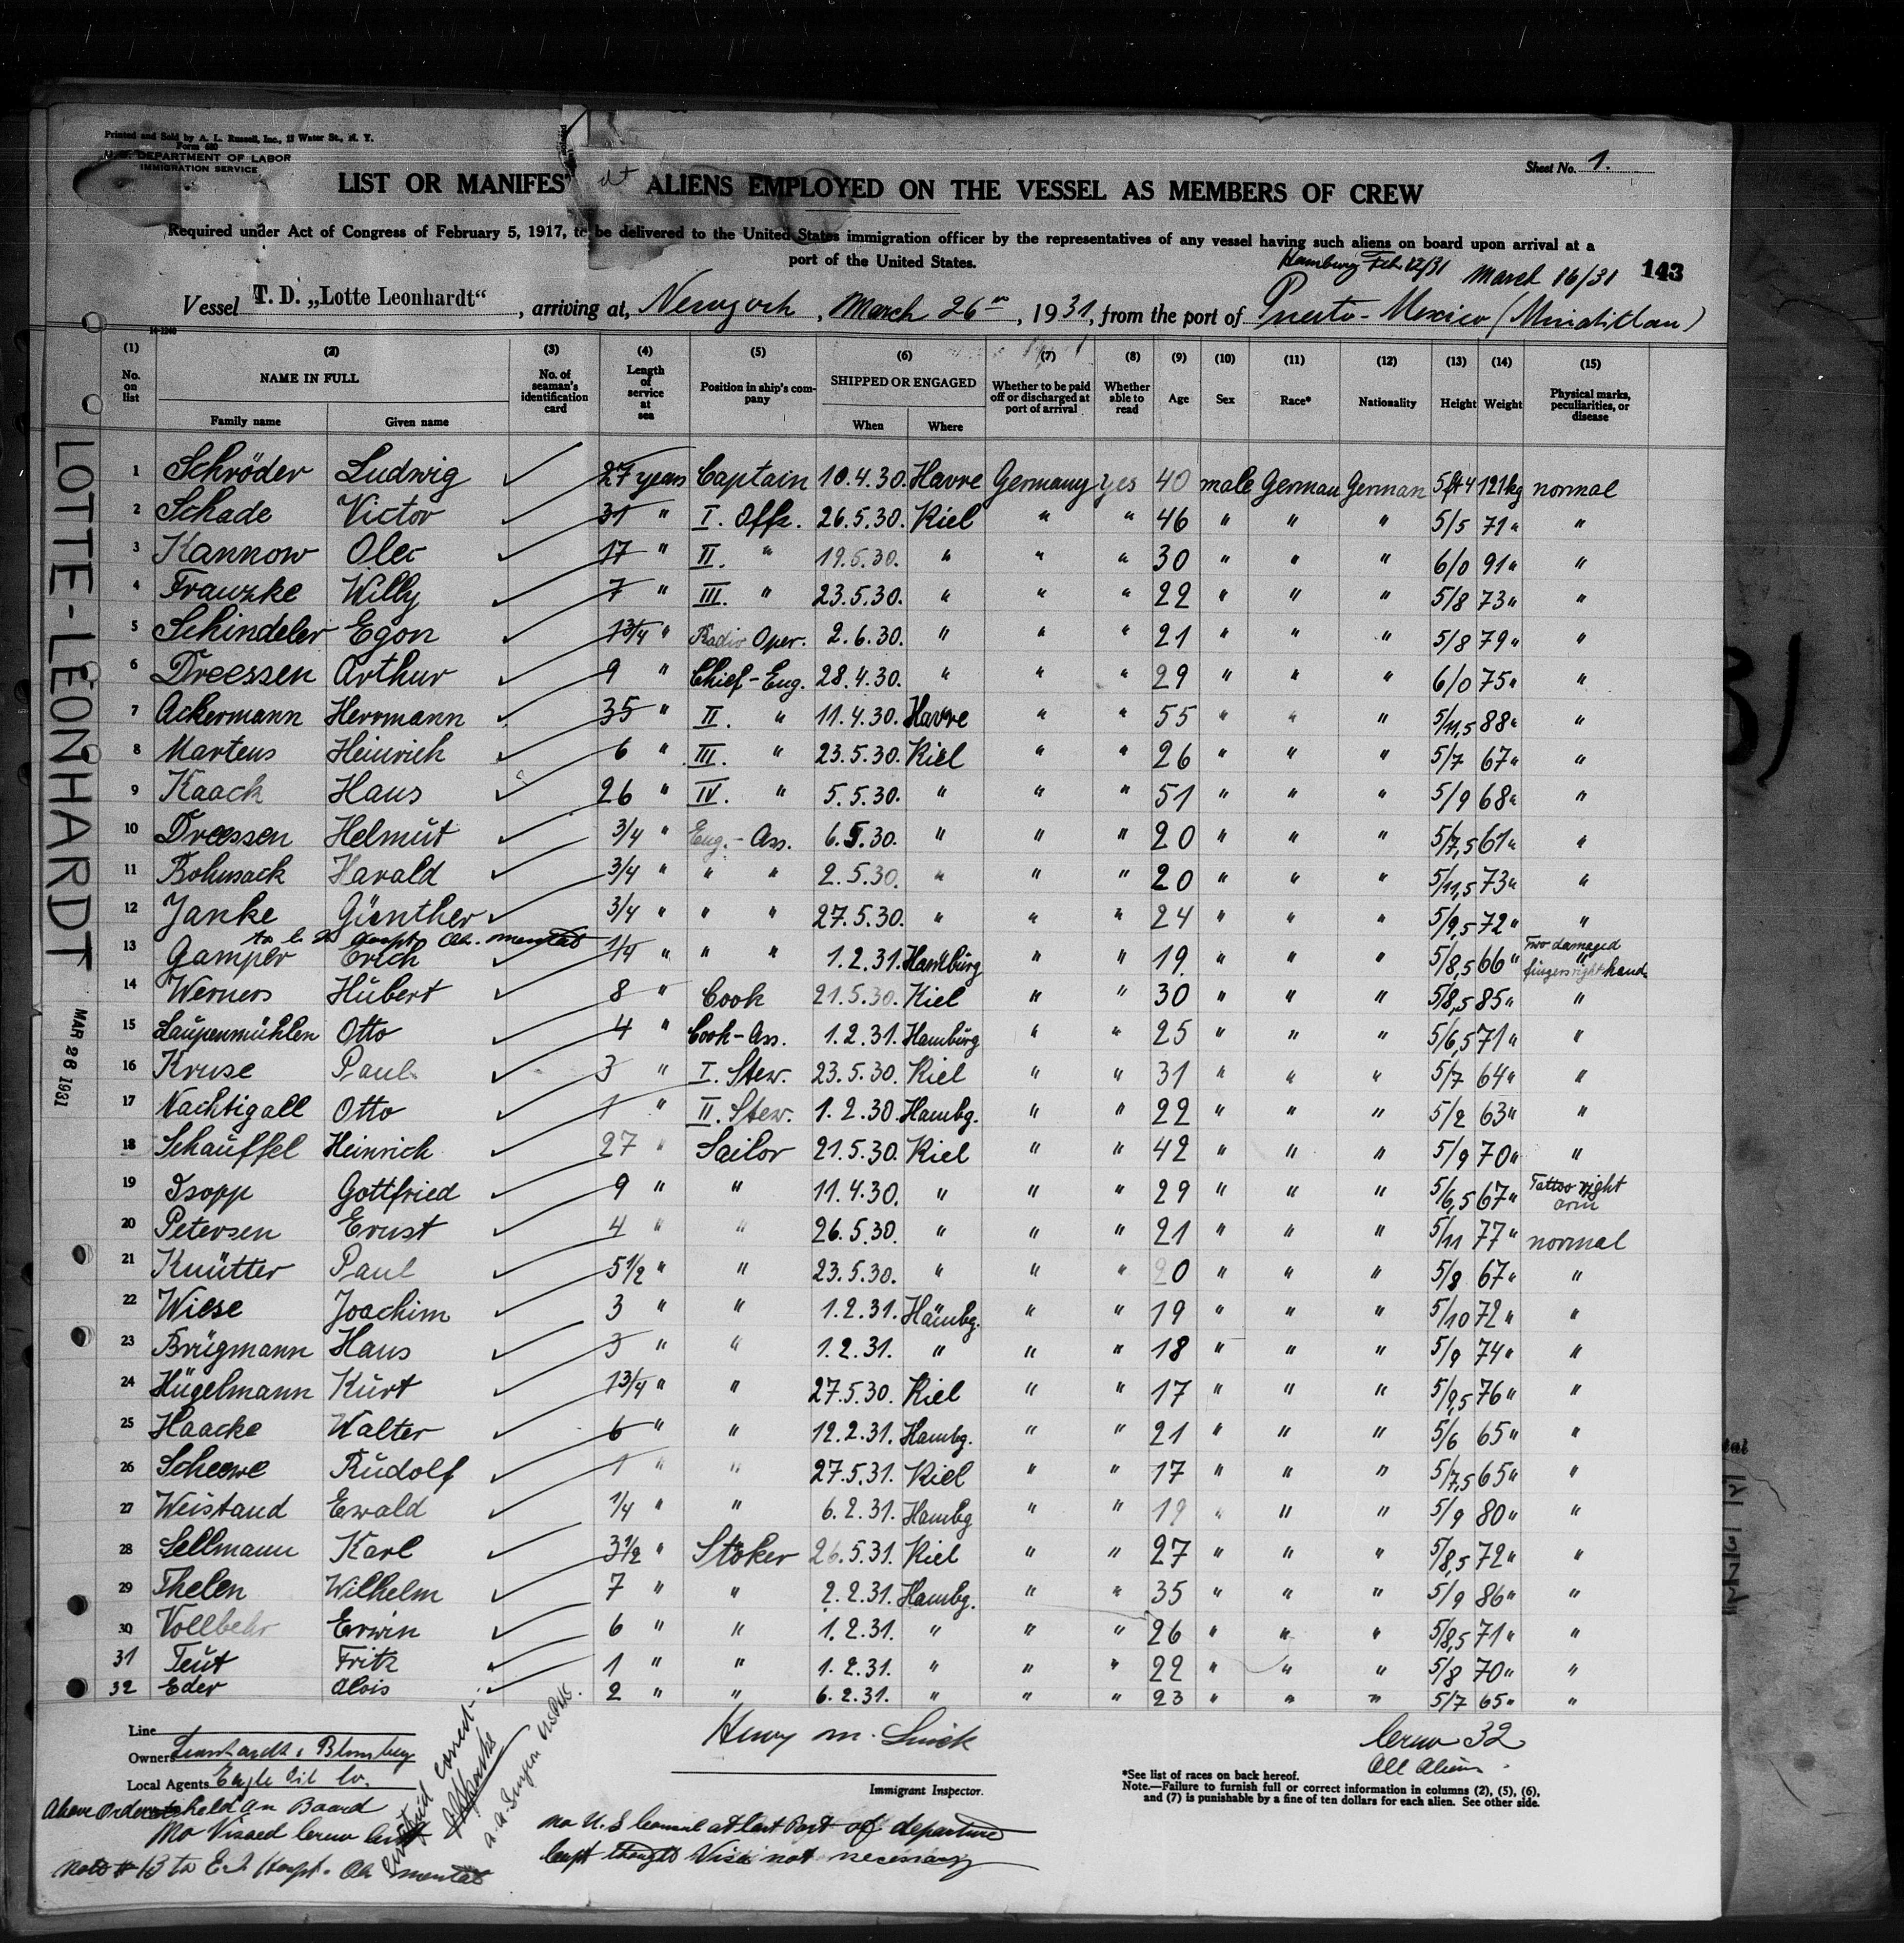 Printed and Sold by A. L. Russell, Inc., 12 Water St., N. Y.
Form 680
U. S. DEPARTMENT OF LABOR
IMMIGRATION SERVICE
Sheet No. 1.
LIST OR MANIFEST ALIENS EMPLOYED ON THE VESSEL AS MEMBERS OF CREW
Required under Act of Congress of February 5, 1917, to be delivered to the United States immigration officer by the representatives of any vessel having such aliens on board upon arrival at a
port of the United States.
Hamburg Feb. 12/31 March 16/31 143
Vessel T. D. „Lotte Leonhardt“, arriving at, Newyork, March 26th, 1931, from the port of Puerto-Mexico (Minatitlan)
14-1240
(1) (2) (3) (4) (5) (6) (7) (8) (9) (10) (11) (12) (13) (14) (15)
No. on list NAME IN FULL Family name Given name No. of seaman's identification card Length of service at sea Position in ship's company SHIPPED OR ENGAGED When Where Whether to be paid off or discharged at port of arrival Whether able to read Age Sex Race* Nationality Height Weight Physical marks, peculiarities, or disease
1 Schröder Ludwig 27 years Captain 10.4.30. Havre Germany yes 40 male German German 5ft4 121kg normal
2 Schade Victor 31 " I. Offz. 26.5.30. Kiel " " 46 " " " 5/5 71 " "
3 Kannow Olec 17 " II. " 19.5.30. " " " 30 " " " 6/0 91 " "
4 Franzke Willy 7 " III. " 23.5.30. " " " 22 " " " 5/8 73 " "
5 Schindeler Egon 1 3/4 " Radio Oper. 2.6.30. " " " 21 " " " 5/8 79 " "
6 Dreessen Arthur 9 " Chief-Eng. 28.4.30. " " " 29 " " " 6/0 75 " "
7 Ackermann Herrmann 35 " II. " 11.4.30. Havre " " 55 " " " 5/11,5 88 " "
8 Martens Heinrich 6 " III. " 23.5.30. Kiel " " 26 " " " 5/7 67 " "
9 Kaack Hans 26 " IV. " 5.5.30. " " " 51 " " " 5/9 68 " "
10 Dreessen Helmut 3/4 " Eng.-Ass. 6.5.30. " " " 20 " " " 5/7,5 61 " "
11 Bohnsack Harald 3/4 " " " 2.5.30. " " " 20 " " " 5/11,5 73 " "
12 Janke Günther 3/4 " " " 27.5.30. " " " 24 " " " 5/9,5 72 " "
to E. I. Hospt. Oh. mental
13 Gamper Erich 1/4 " " " 1.2.31. Hamburg " " 19 " " " 5/8,5 66 " Two damaged fingers right hand
14 Werners Hubert 8 " Cook 21.5.30. Kiel " " 30 " " " 5/8,5 85 " "
15 Laupenmühlen Otto 4 " Cook-Ass. 1.2.31. Hamburg " " 25 " " " 5/6,5 71 " "
16 Kruse Paul 3 " I. Stew. 23.5.30. Kiel " " 31 " " " 5/7 64 " "
17 Nachtigall Otto 1 " II. Stew. 1.2.30 Hambg. " " 22 " " " 5/2 63 " "
18 Schauffel Heinrich 27 " Sailor 21.5.30. Kiel " " 42 " " " 5/9 70 " "
19 Isopp Gottfried 9 " " 11.4.30. " " " 29 " " " 5/6,5 67 " Tattoo right arm
20 Petersen Ernst 4 " " 26.5.30. " " " 21 " " " 5/11 77 " normal
21 Knütter Paul 5 1/2 " " 23.5.30. " " " 20 " " " 5/8 67 " "
22 Wiese Joachim 3 " " 1.2.31. Hambg. " " 19 " " " 5/10 72 " "
23 Brügmann Hans 3 " " 1.2.31. " " " 18 " " " 5/9 74 " "
24 Hügelmann Kurt 1 3/4 " " 27.5.30. Kiel " " 17 " " " 5/9,5 76 " "
25 Haacke Walter 6 " " 12.2.31. Hambg. " " 21 " " " 5/6 65 " "
26 Scheewe Rudolf 1 " " 27.5.31. Kiel " " 17 " " " 5/7,5 65 " "
27 Weistand Ewald 1/4 " " 6.2.31. Hambg " " 19 " " " 5/9 80 " "
28 Sellmann Karl 3 1/2 " Stoker 26.5.31. Kiel " " 27 " " " 5/8,5 72 " "
29 Thelen Wilhelm 7 " " 2.2.31. Hambg. " " 35 " " " 5/9 86 " "
30 Vollbehr Erwin 6 " " 1.2.31. " " " 26 " " " 5/8,5 71 " "
31 Teut Fritz 1 " " 1.2.31. " " " 22 " " " 5/8 70 " "
32 Eder Alois 2 " " 6.2.31. " " " 23 " " " 5/7 65 " "
LOTTE-LEONHARDT MAR 26 1931
Line
Owners Leonhardt & Blumberg
Local Agents Eagle Oil Co.
Above Ordered held on Board
No Visaed Crew List
Note # 13 to E. I. Hospt. Oh mental
Henry M.
Immigrant Inspector.
No U. S Consul at last Port of departure
Capt thought Visa not necessary
Crew 32
All Aliens.
*See list of races on back hereof.
Note.—Failure to furnish full or correct information in columns (2), (5), (6),
and (7) is punishable by a fine of ten dollars for each alien. See other side.